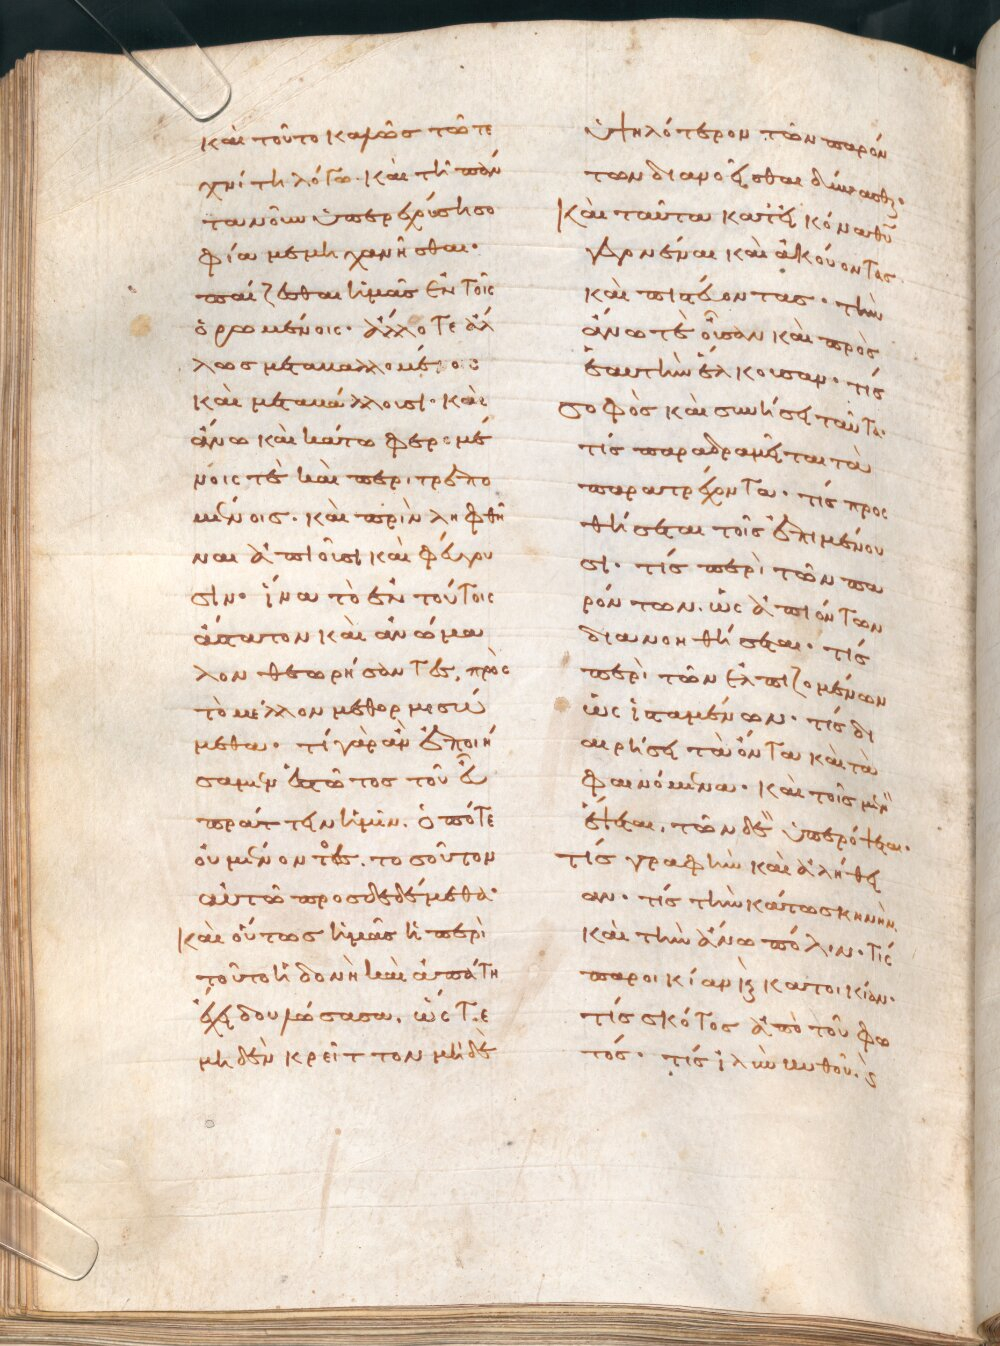 καὶ τοῦτο καλῶς τῶ τε
χνίτη λόγω. καὶ τῆ πάν
τα νοῦν ὑπερεχούση σο
φία μεμηχανῆσθαι·
παίζεσθαι ἡμᾶς ἐν τοῖς
ὁρωμένοις· ἄλλοτε ἄλ
λως μεταβαλλομένοις
καὶ μεταβάλλουσι· καὶ
ἄνω καὶ κάτω φερομέ
νοις τὲ καὶ περιτρεπο
μένοις· καὶ πρὶν ληφθῆ
ναι ἀπιοῦσι καὶ φεύγου
σιν· ἵνα τὸ ἐν τούτοις
ἄστατον καὶ ἀνώμα
λον θεωρήσαντες, πρὸς
τὸ μέλλον μεθορμισώ
μεθα· τί γὰρ ἂν ἐποιή
σαμεν ἑστῶτος τοῦ εὖ
πράττειν ἡμῖν. ὁπότε
οὐ μένοντος. τοσοῦτον
αὐτῶ προσδεδέμεθα·
καὶ οὕτως ἡμᾶς ἡ περὶ
τοῦτο ἡδονὴ καὶ ἀπάτη
ἔχει δουλώσασα. ὥστε
μηδὲν κρεῖττον μηδὲ
ὑψηλότερον τῶν παρόν
των διανοεῖσθαι δύνασθαι·
Καὶ ταῦτα κατ' εἰκόνα θῦ
γεγονέναι καὶ ἀκούοντας
καὶ πιστεύοντας· τὴν
ἄνω τὲ οὖσαν καὶ πρὸς
ἑαυτὴν ἕλκουσαν· τίς
σοφὸς καὶ συνήσει ταῦτα·
τίς παραδραμεῖται τὰ
παρατρέχοντα· τίς προς
θήσεται τοῖς ἐπιμένου
σι· τίς περὶ τῶν πα
ρόντων. ὡς ἀπιόντων
διανοηθήσεται· τίς
περὶ τῶν ἐλπιζομένων
ὡς ἱσταμένων· τίς δι
αιρήσει τὰ ὄντα καὶ τὰ
φαινόμενα· καὶ τοῖς μὲν
ἕψεται. τῶν δὲ ὑπερόψεται·
τίς γραφὴν καὶ ἀλήθει
αν· τίς τὴν κάτω σκηνὴν.
καὶ τὴν ἄνω πόλιν· τίς
παροικίαν καὶ κατοικίαν·
τίς σκότος ἀπὸ τοῦ φω
τός· τίς ἰλὺν βυθοῦ. καὶ